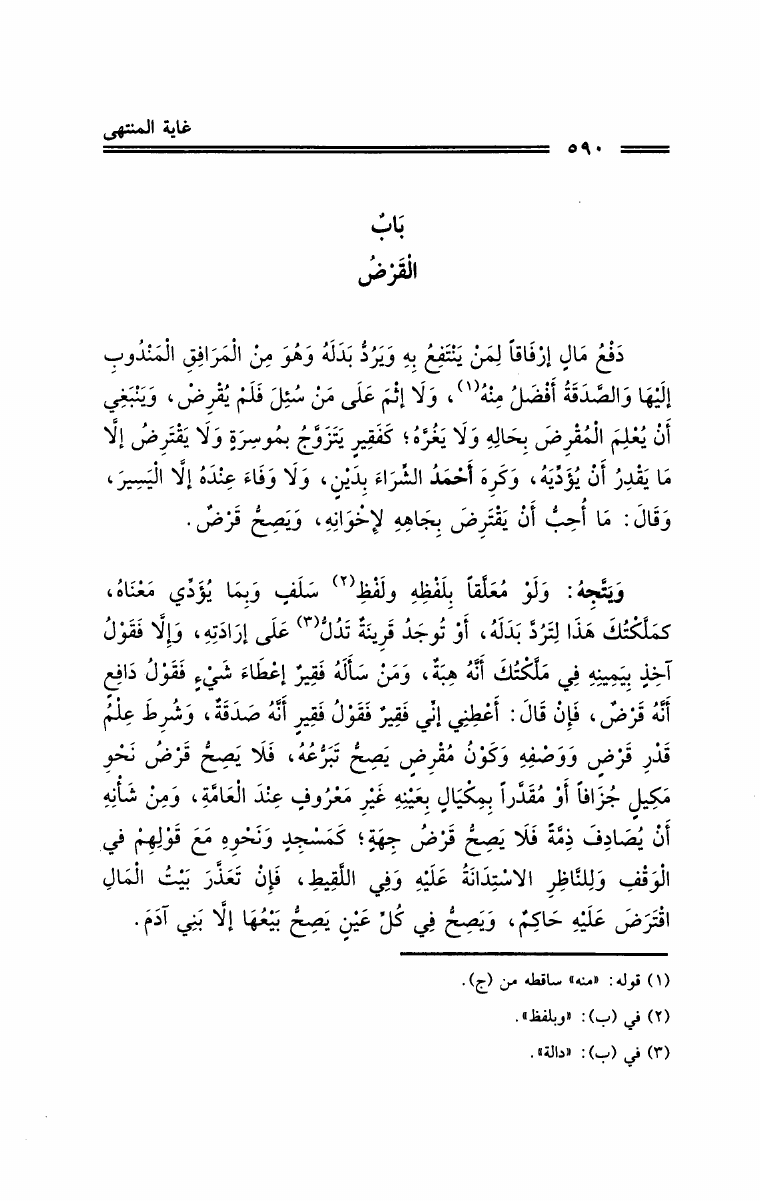 غاية المنتهى
٥٩٠
بَابٌ
الْقَرْضُ
دَفْعُ مَالٍ إرْفَاقاً لِمَنْ يَنْتَفِعُ بِهِ وَيَرُدُّ بَدَلَهُ وَهُوَ مِنْ الْمَرَافِقِ الْمَنْدُوبِ
إلَيْهَا وَالصَّدَقَةُ أَفْضَلُ مِنْهُ(١)، وَلَا إثْمَ عَلَى مَنْ سُئِلَ فَلَمْ يُقْرِضْ، وَيَنْبَغِي
أَنْ يُعْلِمَ الْمُقْرِضَ بِحَالِهِ وَلَا يَغُرَّهُ؛ كَفَقِيرٍ يَتَزَوَّجُ بمُوسِرَةٍ وَلَا يَقْتَرِضُ إلَّا
مَا يَقْدِرُ أَنْ يُؤَدِّيَهُ، وَكَرِهَ أَحْمَدُ الشِّرَاءَ بِدَيْنٍ، وَلَا وَفَاءَ عِنْدَهُ إلَّا الْيَسِيرَ،
وَقَالَ: مَا أُحِبُّ أَنْ يَقْتَرِضَ بِجَاهِهِ لِإخْوَانِهِ، وَيَصِحُّ قَرْضٌ.
وَيَتَّجِهُ: وَلَوْ مُعَلَّقاً بِلَفْظِهِ ولَفْظِ(٢) سَلَفٍ وَبِمَا يُؤَدِّي مَعْنَاهُ،
كمَلَّكْتُكَ هَذَا لِتَرُدَّ بَدَلَهُ، أَوْ تُوجَدُ قَرِينَةٌ تَدُلُّ(٣) عَلَى إرَادَتِهِ، وَإِلَّا فَقَوْلُ
آخِذٍ بِيَمِينِهِ فِي مَلَّكْتُكَ أَنَّهُ هِبَةٌ، وَمَنْ سَأَلَهُ فَقِيرٌ إعْطَاءَ شَيْءٍ فَقَوْلُ دَافِعٍ
أَنَّهُ قَرْضٌ، فَإِنْ قَالَ: أَعْطِنِي إنِّي فَقِيرٌ فَقَوْلُ فَقِيرٍ أَنَّهُ صَدَقَةٌ، وَشُرِطَ عِلْمُ
قَدْرِ قَرْضٍ وَوَصْفِهِ وَكَوْنُ مُقْرِضٍ يَصِحُّ تَبَرُّعُهُ، فَلَا يَصِحُّ قَرْضُ نَحْوِ
مَكِيلٍ جُزَافاً أَوْ مُقَدَّراً بِمِكْيَالٍ بِعَيْنِهِ غَيْرِ مَعْرُوفٍ عِنْدَ الْعَامَّةِ، وَمِنْ شَأْنِهِ
أَنْ يُصَادِفَ ذِمَّةً فَلَا يَصِحُّ قَرْضُ جِهَةٍ؛ كَمَسْجِدٍ وَنَحْوِهِ مَعَ قَوْلِهِمْ في
الْوَقْفِ وَلِلنَّاظِرِ الاسْتِدَانَةُ عَلَيْهِ وَفِي اللَّقِيطِ، فَإِنْ تَعَذَّرَ بَيْتُ الْمَالِ
اقْتَرَضَ عَلَيْهِ حَاكِمٌ، وَيَصِحُّ فِي كُلِّ عَيْنٍ يَصِحُّ بَيْعُهَا إلَّا بَنِي آدَمَ.
(١) قوله: «منه» ساقطه من (ج).
(٢) في (ب): «وبلفظ».
(٣) في (ب): «دالة».